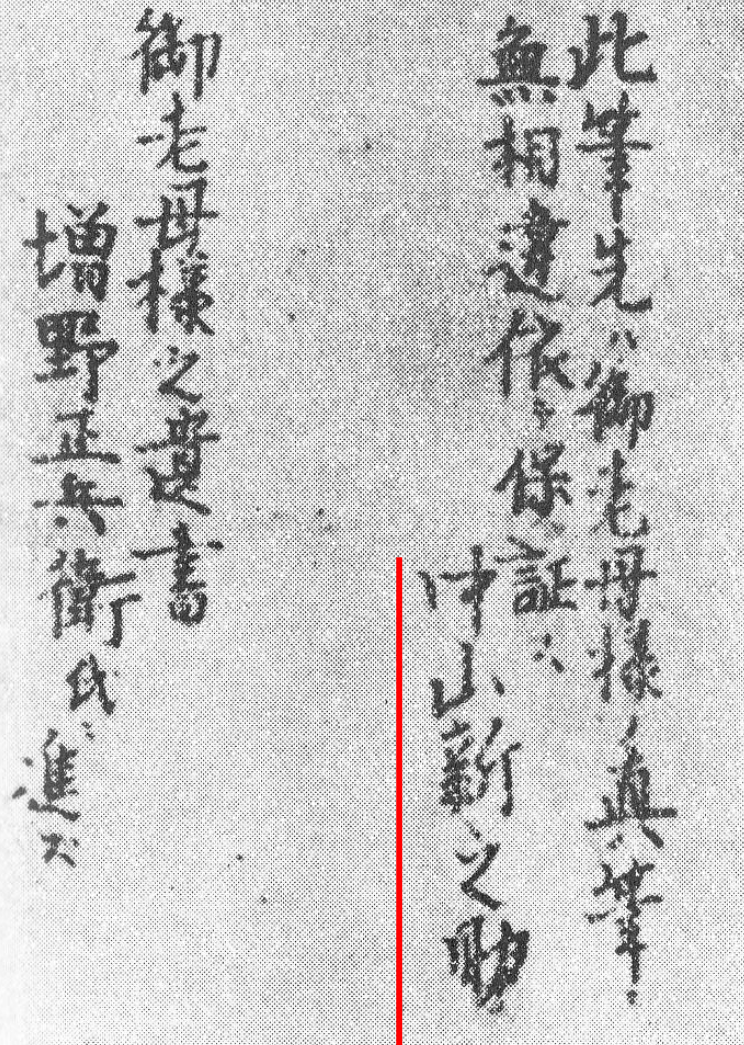 此筆先ハ御老母様真筆
無相違依之保証ス
中山新之助
御老母様之遺書
増野正兵衛氏ニ進ス